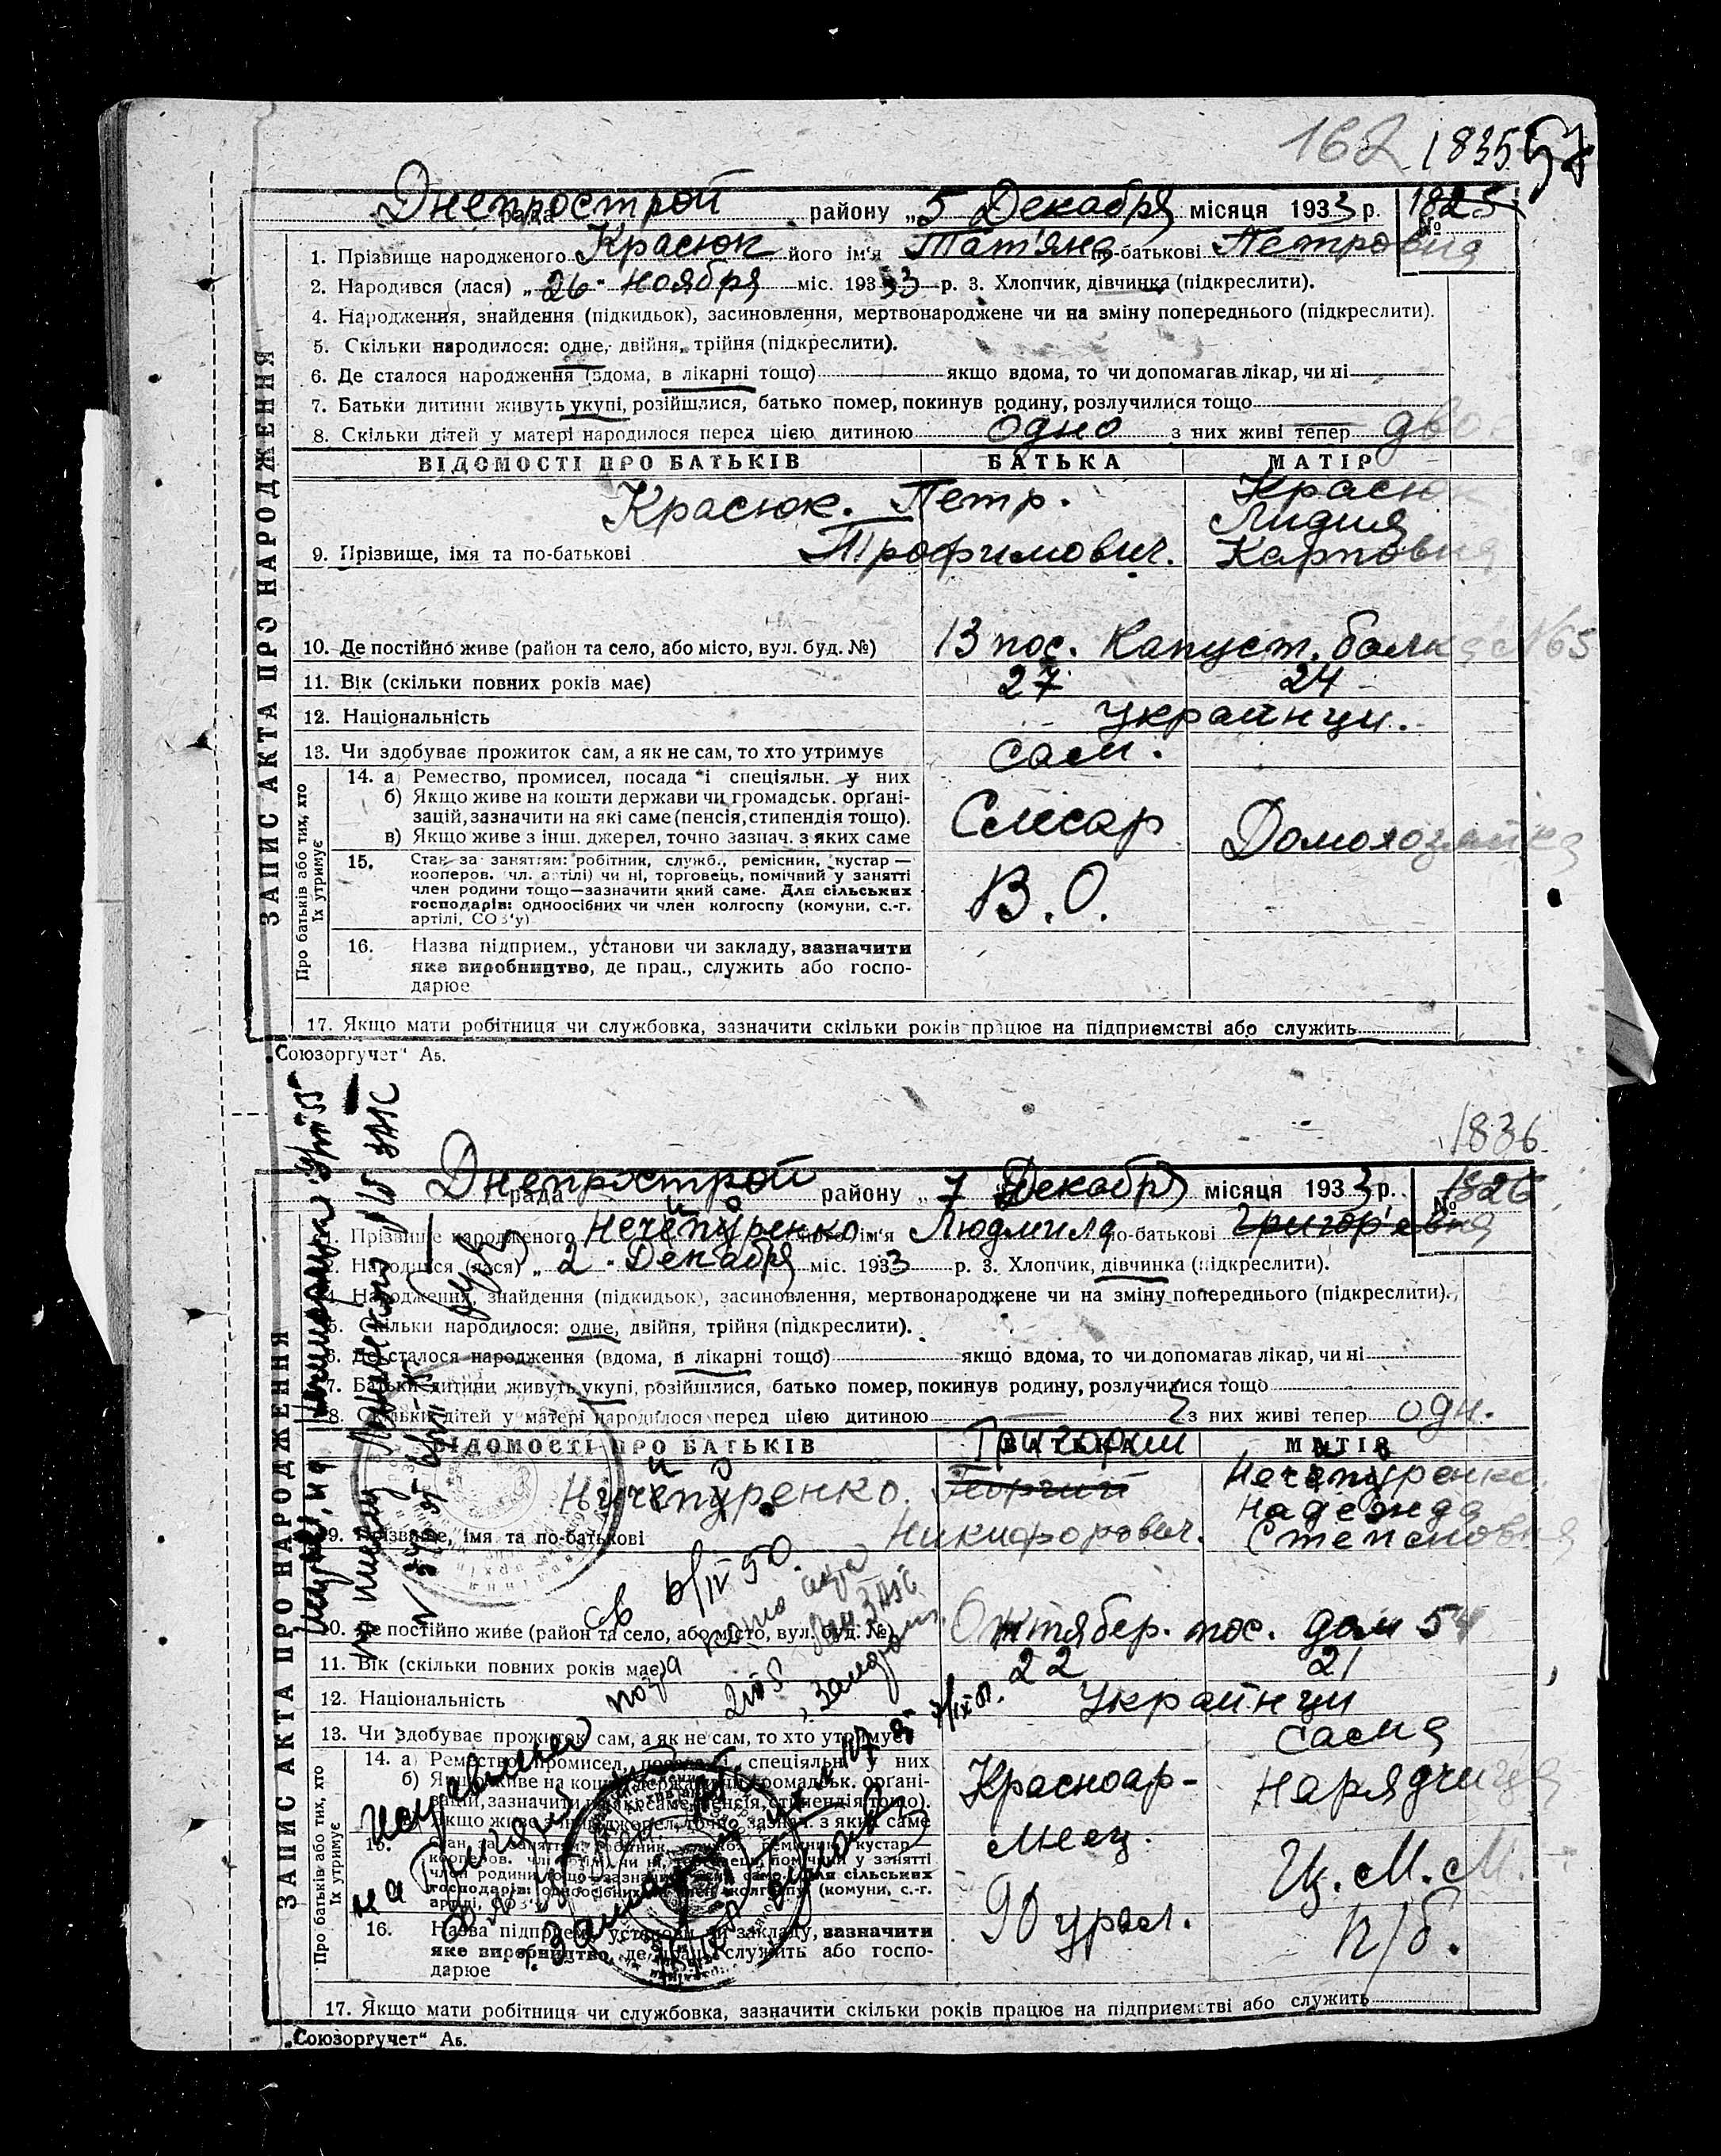 162 1835 57
Днепрострой
рада району „5 Декабря місяця 1933 р. № 1825
1. Прізвище народженого Красюк його ім'я Тат'яна по-батькові Петровна
2. Народився (лася) „26" Ноября міс. 1933 р. 3. Хлопчик, дівчинка (підкреслити).
4. Народження, знайдення (підкидьок), засиновлення, мертвонароджене чи на зміну попереднього (підкреслити).
5. Скільки народилося: одне, двійня, трійня (підкреслити).
6. Де сталося народження (вдома, в лікарні тощо) якщо вдома, то чи допомагав лікар, чи ні
7. Батьки дитини живуть укупі, розійшлися, батько помер, покинув родину, розлучилися тощо
8. Скільки дітей у матері народилося перед цією дитиною одно з них живі тепер двое
ЗАПИС АКТА ПРО НАРОДЖЕННЯ
ВІДОМОСТІ ПРО БАТЬКІВ БАТЬКА МАТІР
Красюк. Петр. Красюк
Лидия
9. Прізвище, імя та по-батькові Трофимович. Карповна
10. Де постійно живе (район та село, або місто, вул. буд. №) 13 пос. Капуст. балка №65
11. Вік (скільки повних років має) 27 24
12. Національність Украинци.
13. Чи здобуває прожиток сам, а як не сам, то хто утримує сам.
Про батьків або тих, хто їх утримує
14. а) Ремество, промисел, посада і спеціяльн. у них
б) Якщо живе на кошти держави чи громадськ. органі-
зацій, зазначити на які саме (пенсія, стипендія тощо).
в) Якщо живе з інш. джерел, точно зазнач. з яких саме
Слесар Домохозяйка
15. Стан за заняттям: робітник, служб., ремісник, кустар —
кооперов. чл. артілі) чи ні, торговець, помічний у занятті
член родини тощо—зазначити який саме. Для сільських
господарів: одноосібних чи член колгоспу (комуни, с.-г.
артілі, СОЗ'у)
В. О.
16. Назва підприєм., установи чи закладу, зазначити
яке виробництво, де прац., служить або госпо-
дарює
17. Якщо мати робітниця чи службовка, зазначити скільки років працює на підприємстві або служить
„Союзоргучет" Аб.
1836
Днепрострой
рада району „7 Декабря місяця 1933 р. № 1826
1. Прізвище народженого Нечепуренко його ім'я Людмила по-батькові Григор'евна
2. Народився (лася) „2" Декабря міс. 1933 р. 3. Хлопчик, дівчинка (підкреслити).
4. Народження, знайдення (підкидьок), засиновлення, мертвонароджене чи на зміну попереднього (підкреслити).
5. Скільки народилося: одне, двійня, трійня (підкреслити).
6. Де сталося народження (вдома, в лікарні тощо) якщо вдома, то чи допомагав лікар, чи ні
7. Батьки дитини живуть укупі, розійшлися, батько помер, покинув родину, розлучилися тощо
8. Скільки дітей у матері народилося перед цією дитиною з них живі тепер одн.
ЗАПИС АКТА ПРО НАРОДЖЕННЯ
ВІДОМОСТІ ПРО БАТЬКІВ БАТЬКА МАТІР
Григорий
Ничепуренко. Георгий Нечепуренко
Надежда
9. Прізвище, імя та по-батькові Никифорович. Степановна
6/IV 50
10. Де постійно живе (район та село, або місто, вул. буд. №) Октябер. пос. дом 54
11. Вік (скільки повних років має) 22 21
12. Національність Украинци
13. Чи здобуває прожиток сам, а як не сам, то хто утримує сама
Про батьків або тих, хто їх утримує
14. а) Ремество, промисел, посада і спеціяльн. у них
б) Якщо живе на кошти держави чи громадськ. органі-
зацій, зазначити на які саме (пенсія, стипендія тощо).
Якщо живе з інш. джерел, точно зазнач. з яких саме
Красноар-
меец. Нарядчица
15. Стан за заняттям: робітник, служб., ремісник, кустар —
кооперов. чл. артілі) чи ні, торговець, помічний у занятті
член родини тощо—зазначити який саме. Для сільських
господарів: одноосібних чи член колгоспу (комуни, с.-г.
артілі, СОЗ'у)
Ц. М. М.
16. Назва підприєм., установи чи закладу, зазначити
яке виробництво, де прац., служить або госпо-
дарює
90 урал. п/б.
17. Якщо мати робітниця чи службовка, зазначити скільки років працює на підприємстві або служить
„Союзоргучет" Аб.